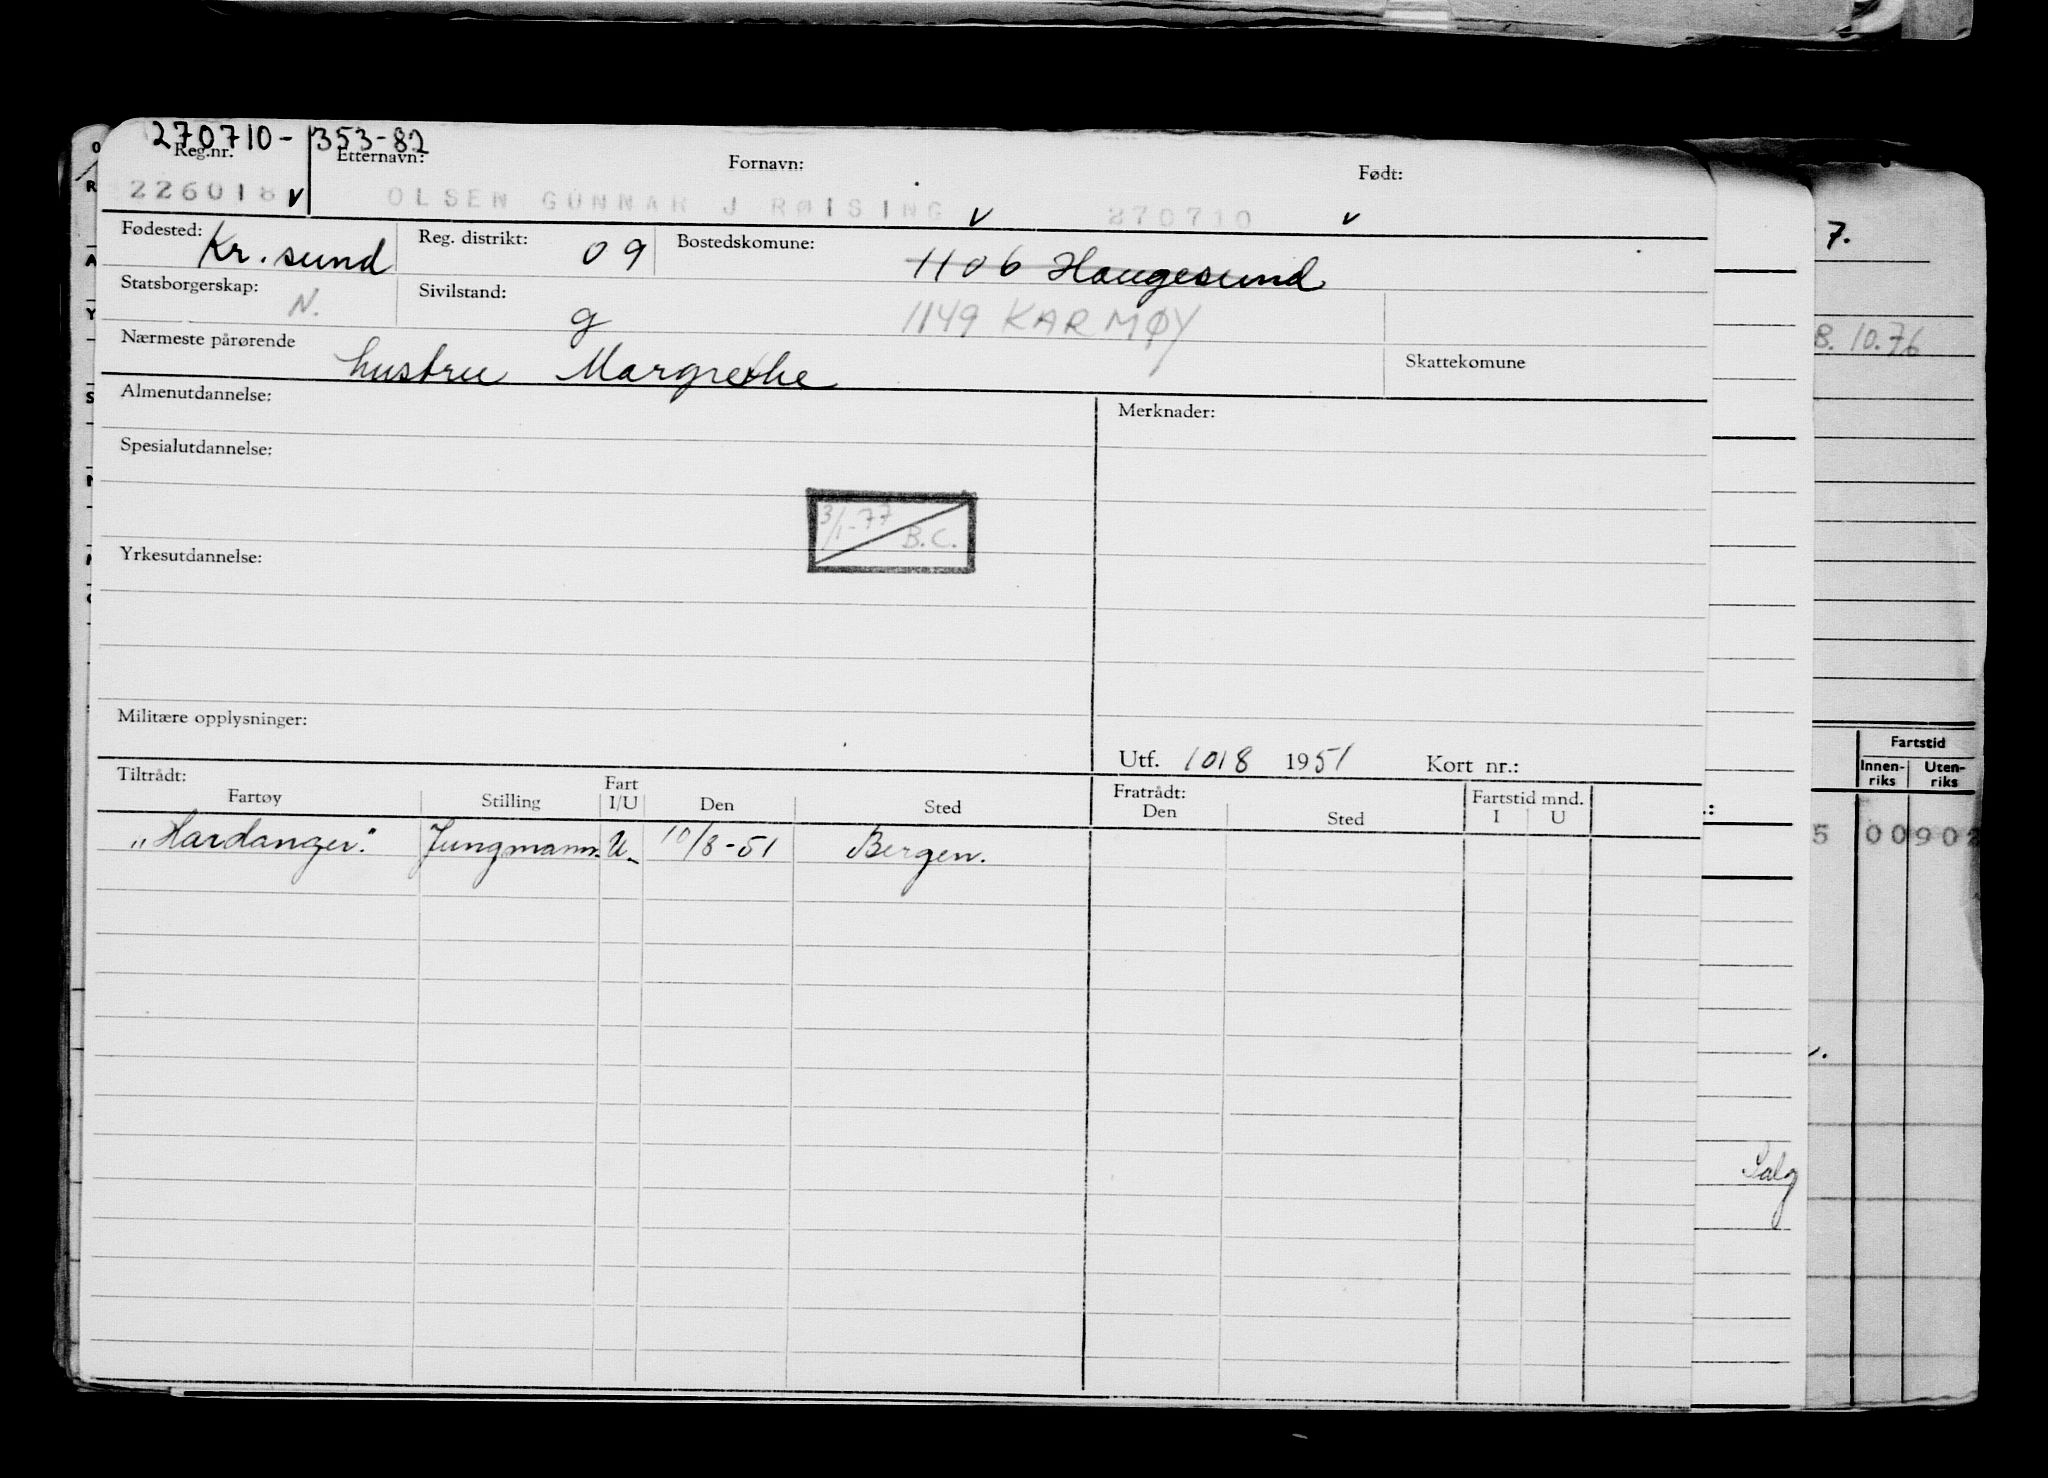 270710-353-82
Reg.nr. Etternavn: Fornavn: Født:
226018 v OLSEN GUNNAR J RØISING v 270710 v
Fødested: Kr. sund Reg. distrikt: 09 Bostedskomune: 1106 Haugesund
Statsborgerskap: N. Sivilstand: g 1149 KARMØY
Nærmeste pårørende hustru Margrethe Skattekomune
Almenutdannelse: Merknader:
Spesialutdannelse:
3/1-77 B.C.
Yrkesutdannelse:
Militære opplysninger:
Utf. 10/8 1951 Kort nr.:
Tiltrådt: Fratrådt:
Fartøy Stilling Fart I/U Den Sted Den Sted Fartstid mnd. I U
"Hardanger." Jungmann. U. 10/8-51 Bergen.
7.
8.10.76
Fartstid
Innen-riks Uten-riks
5 00902
Salg